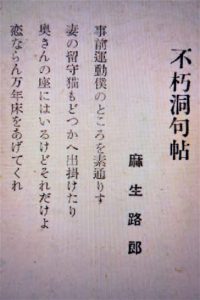 不朽洞句帖
麻生路郎
事前運動僕のところを素通りす
妻の留守猫もどつかへ出掛けたり
奥さんの座にはいるけどそれだけよ
恋ならん万年床をあげてくれ